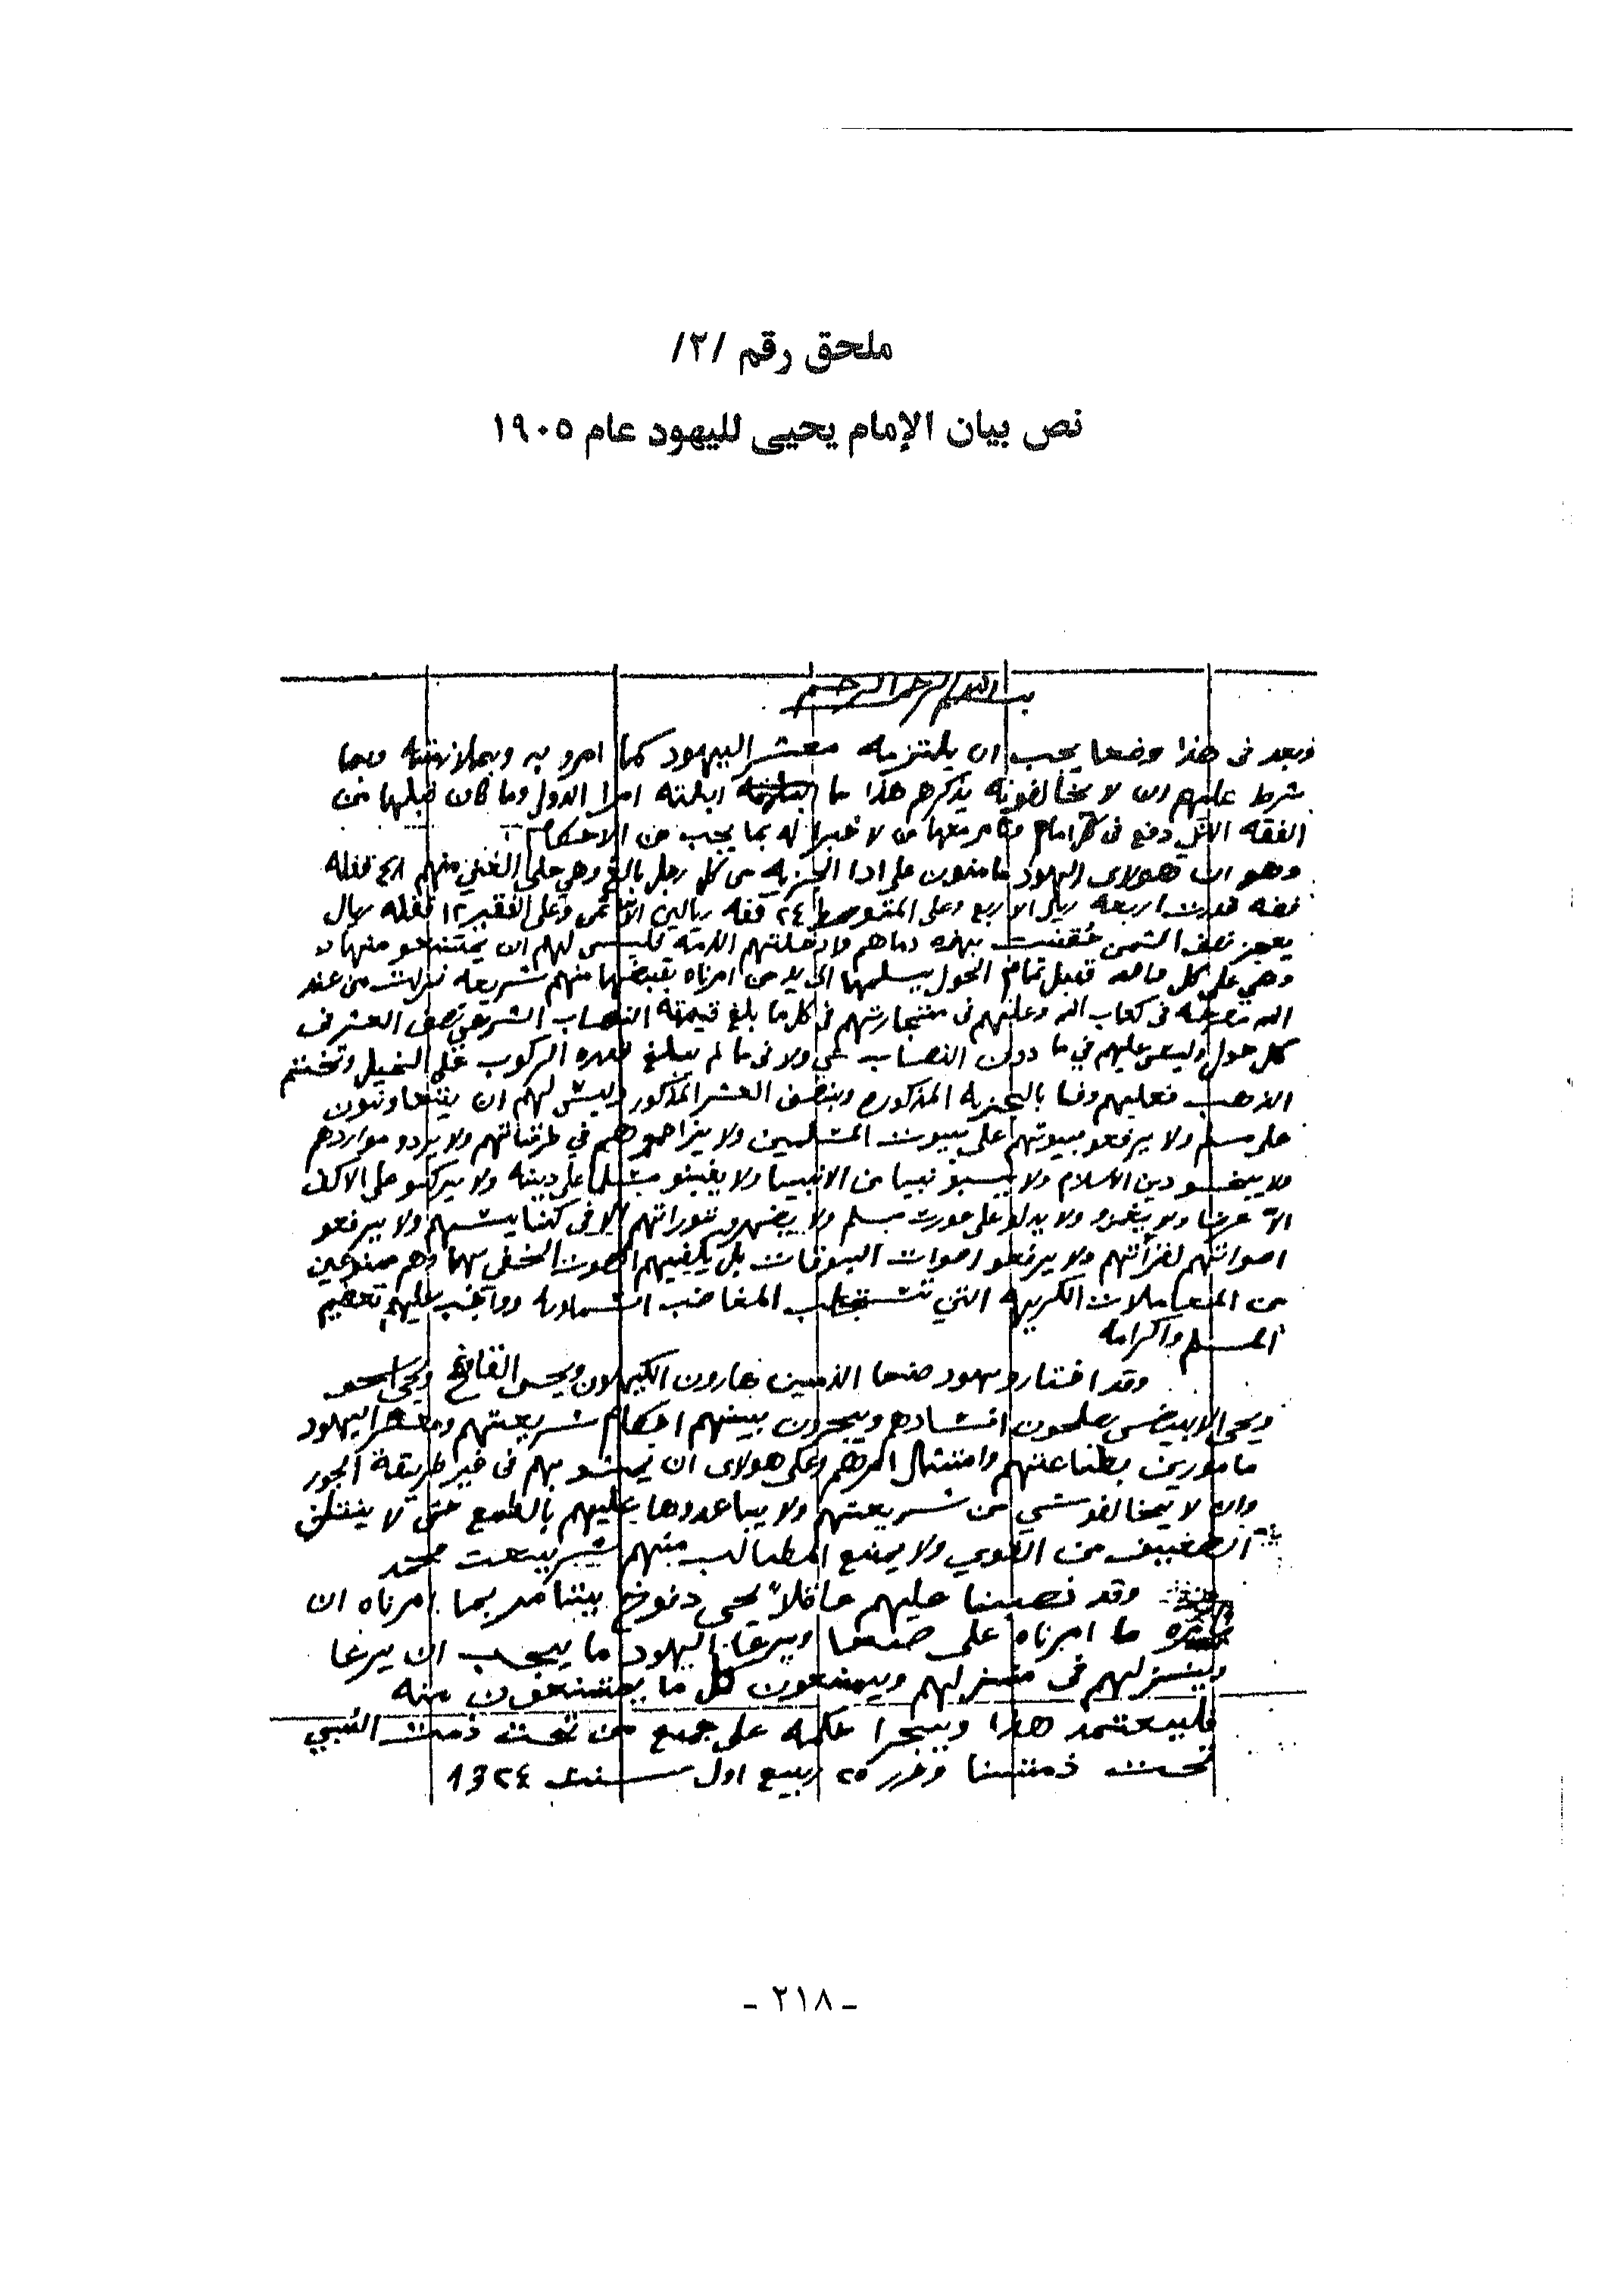 ملحق رقم /٢/
نص بيان الإمام يحيى لليهود عام ١٩٠٥
بسم الله الرحمن الرحيم
وبعد فى هذا وضعنا يجب ان يلتزمه معشر اليهود كما امرو به وبملازمته وبما
شرط عليهم ان لا يخالفونه يذكرهم هذا ما ابلته امرا الدول وما كان قبلها من
الفقه دفع فى من لا خبرا له بما يجب من الاحكام
وهو ان هولاى اليهود مامنون على ادا الجزيه من كل رجل بالغ وهي على الغني منهم ٤٨ قفله
فضه اربعه ريال الا ربع وعلى المتوسط ٢٤ قفله ريالين الا ثمن وعلى الفقير ١٢ قفله ريال
يعجز نصف الثمن حقنت بهذه دماهم وادخلتهم الذمه فليس لهم ان يمتنعو منها
وهي على كل قبل تمام الحول يسلمها الى يد من امرناه بقبضها منهم شريعه نزلت من عند
الله فى كتاب الله وعليهم فى متجارتهم فى كل ما بلغ قيمته النصاب الشرعي نصف العشر فى
كل حول وليس عليهم في ما دون النصاب شي ولا فى ما لم يبلغ الركوب على الخيل وتختتم
الذهب فعليهم وفا بالجزيه المذكوره وبنصف العشر المذكور وليس لهم ان يتعاونون
على مسلم ولا يرفعو بيوتهم على بيوت المسلمين ولا يزاحموهم في طرقاتهم ولا يردو مواردهم
ولا دين الاسلام ولا يسبو نبيا من الانبيا ولا مسلما على دينه ولا يركبو على الاكف
الا عرضا ولا ولا يدلو على عورت مسلم ولا توراتهم الا فى كنايسهم ولا يرفعو
اصواتهم لقرأتهم ولا يرفعو اصوات البوقات بل يكفيهم الصوت الخفي وهم ممنوعين
من المعاملات الكريهه التي تستجلب المغاضب السماويه وواجب عليهم تعظيم
المسلم واكرامه
وقد اختارو يهود صنعا الذميين هارون الكهن ويحى القافح ويحى اسحق
ويحى الابيض يصلحون افسادهم ويجرون بينهم احكام شريعتهم ومعشر اليهود
مامورين بطاعتهم وامتثال امرهم وعلى هولاى ان يمشو بهم فى غير طريقة الجور
وان لا يخالفو شي من شريعتهم ولا يباعدوها عليهم بالطمع حتى لا
الضعيف من القوي ولا يمنع المطالب منهم شريعت محمد
وقد نصبنا عليهم عاقلاً يحى دنوخ بيتامر بما امرناه ان
ما امرناه على صنعا ويرعا اليهود ما يجب ان يرعا
وينزلهم فى منزلهم ويمنعون كل ما يمتنعون منه
فليعتمد هذا ويجرا حكمه على جميع من تحت ذمت النبي
تحت ذمتنا وحرر ٢٥ ربيع اول سنت ١٣٢٤
- ٢١٨ -